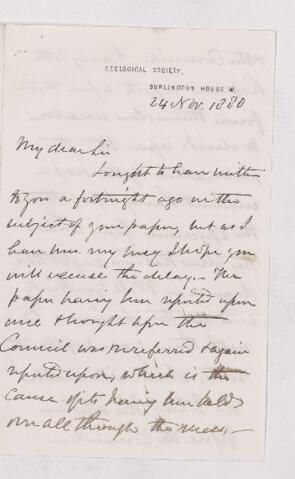 GEOLOGICAL SOCIETY,
BURLINGTON HOUSE. W.
24 Nov. 1880
My dear Sir
I ought to have written
to you a fortnight ago on the
subject of your paper, but as I
have been very busy I hope you
will excuse the delay. - The
paper having been reported upon
once & brought before the
Council was rereferred & again
reported upon, which is the
cause of its having been held
over all through the recess, -